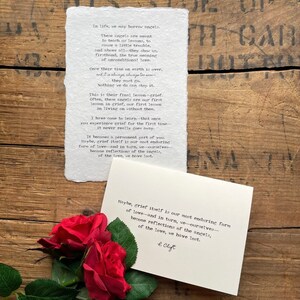 In life, we may borrow angels.
These angels are meant
to teach us lessons, to
cause a little trouble,
and above all—they show us,
firsthand, the true meaning
of unconditional love.
Once their time on earth is over,
they must go.
Nothing we do can stop it.
This is their final lesson—grief.
Often, these angels are our first
lesson in grief, our first lesson
in living on without them.
I have come to learn, that once
you experience grief for the first time—
it never really goes away.
It becomes a permanent part of you.
Maybe, grief itself is our most enduring form
of love—and in turn, we—ourselves—
become reflections of the angels,
of the love, we have lost.
Maybe, grief itself is our most enduring form
of love—and in turn, we—ourselves—
become reflections of the angels,
of the love, we have lost.